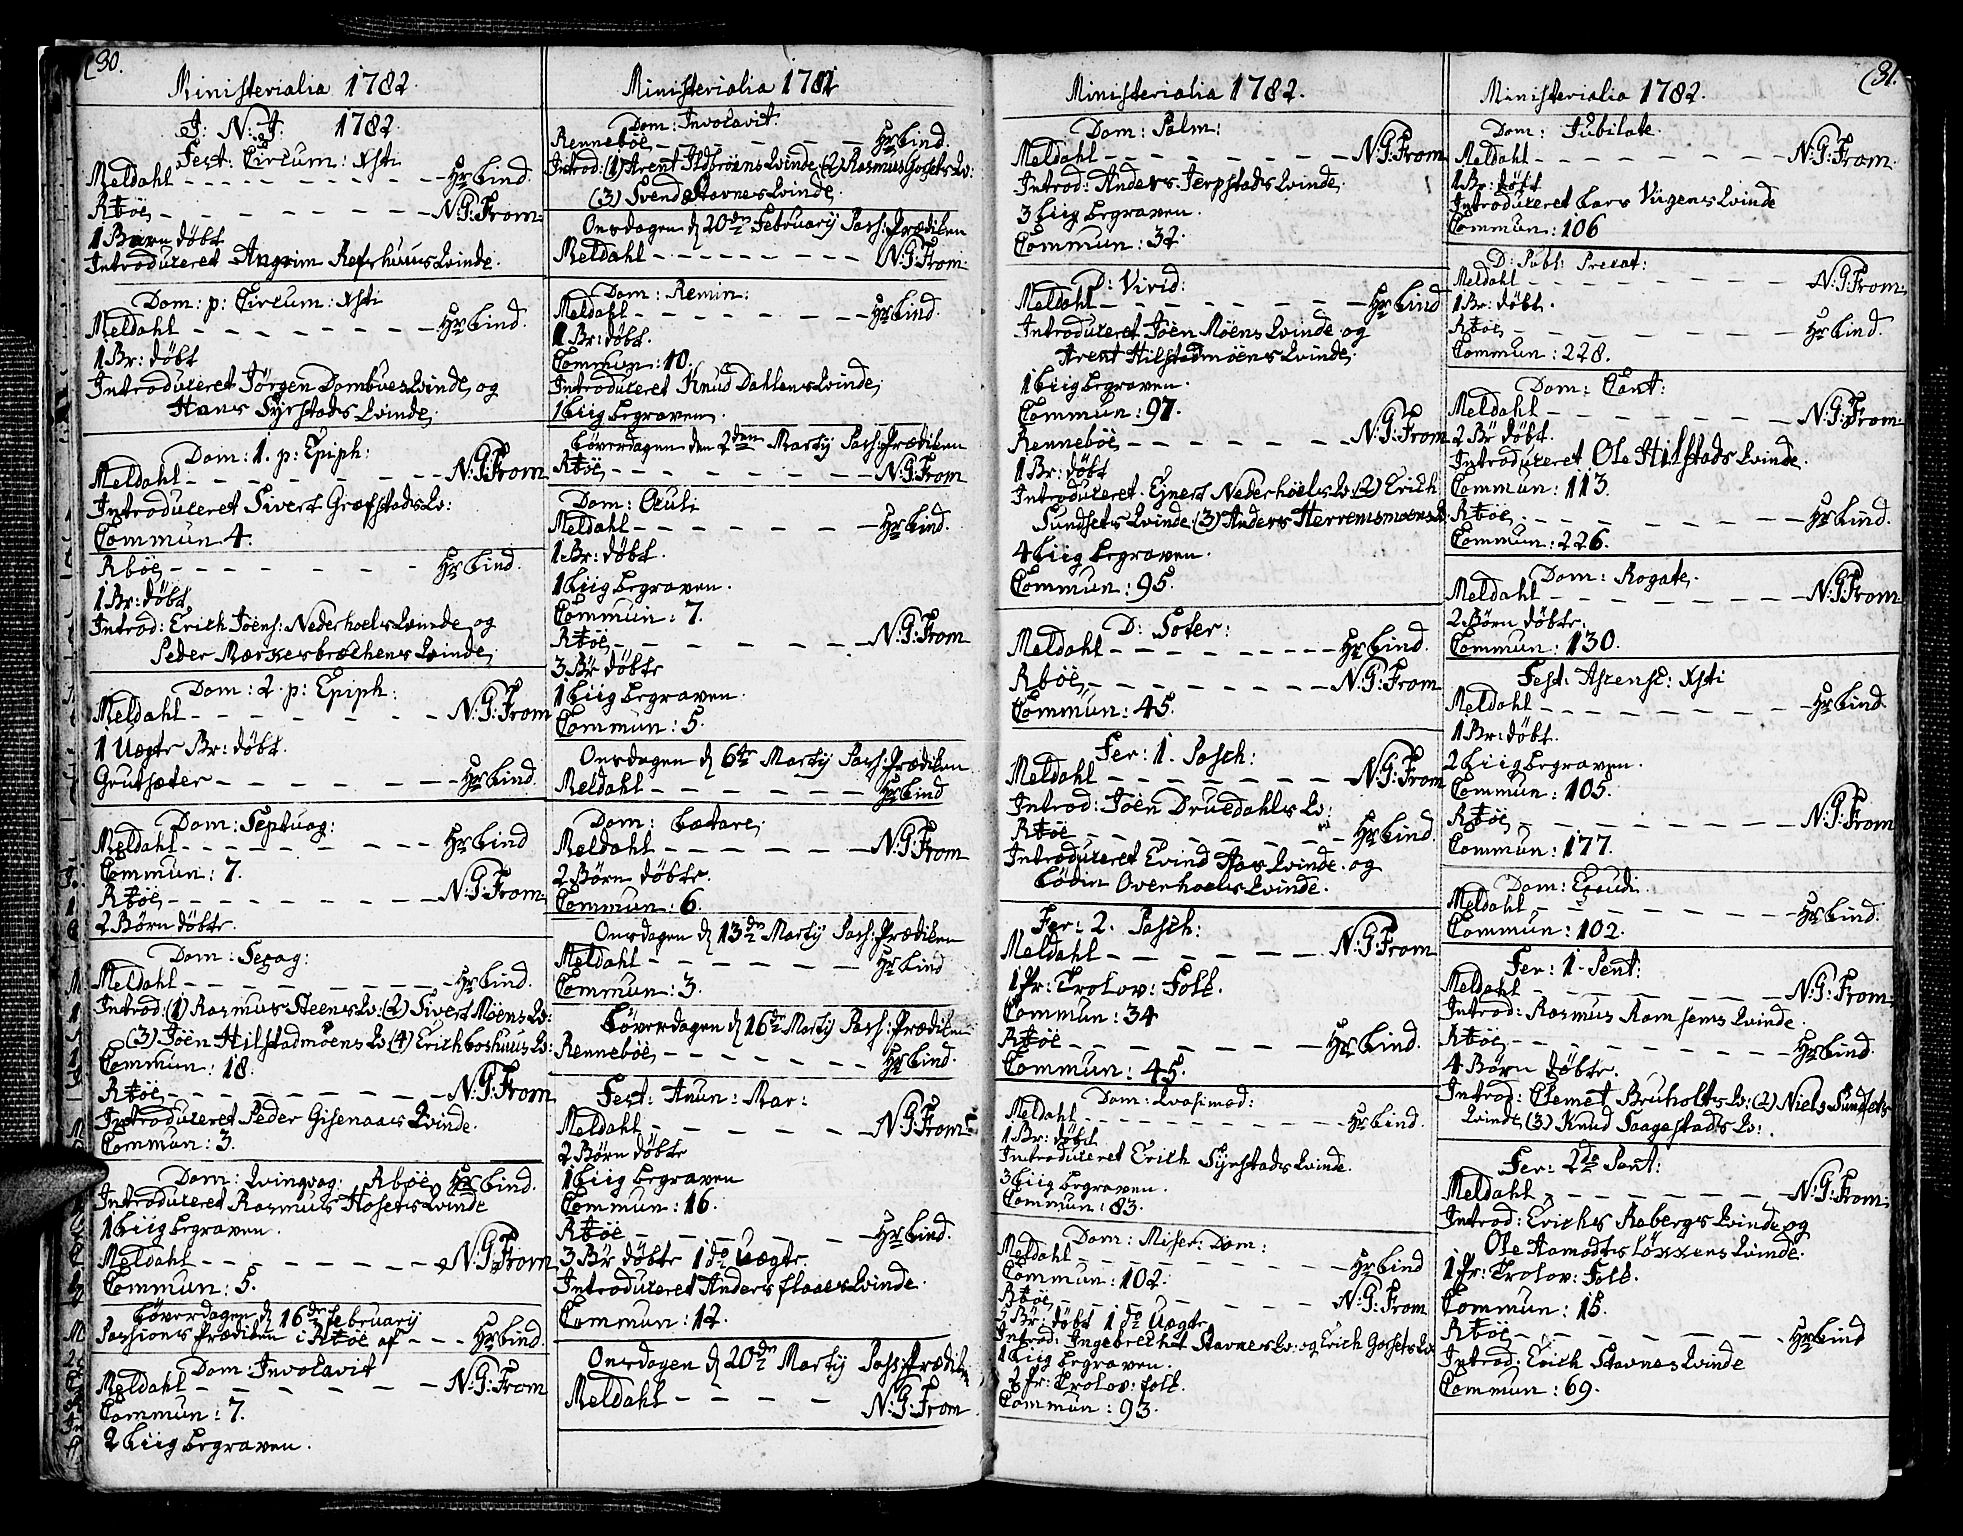 (30.
Ministerialia 1782.
J: N: J: 1782.
Fest: Circum: Xsti
Meldahl - - - Hr Lind.
Rbøe - - - N:G:From.
1 Barn døbt
Introduceret Angrim Refshuus Qvinde.
Dom: p: Circum: Xsti
Meldahl - - - Hr Lind.
1 Br: døbt
Introduceret Jörgen Dombues Qvinde, og
Hans Syrstads Qvinde.
Dom: 1. p: Epiph:
Meldahl - - - N:G:From
Introduceret Sivert Græfstads Qv:
Commun 4.
Rbøe - - - Hr Lind.
1 Br: døbt
Introd: Erich Joëns: Nederhoels Qvinde og
Peder Mærkesbrochens Qvinde,
Dom: 2. p: Epiph:
Meldahl - - - N:G:From
1 Uægte Br: døbt.
Grutsæter - - - Hr Lind.
Dom: Septuag:
Meldahl - - - Hr Lind
Commun: 7.
Rbøe - - - N:G:From.
2 Børn døbte.
Dom: Sexag:
Meldahl - - - Hr Lind.
Introd: (1) Rasmus Steens Qv: (2) Sivert Möens Qv:
(3) Joën Hilstadmoens Qv: (4) Erich Boshuus Qv:
Commun: 18.
Rbøe - - - N:G:From
Introduceret Peder Gisenaas Qvinde.
Commun: 3.
Dom: Qvinqvag: Rbøe, Hr Lind.
Introduceret Rasmus Hosets Qvinde
1 Liig begraven.
Meldahl - - - N:G:From
Commun: 5.
Løverdagen d 16de February
Passions Prædiken i Rbøe af - - - Hr Lind.
Dom: Invocavit
Meldahl - - - N:G:From
Commun: 7.
2 Liig begraven.
Ministerialia 1782
Dom: Invocavit.
Rennebøe - - - Hr Lind.
Introd: (1) Arent Ildsröens Qvinde (2) Rasmus Gosets Qv:
(3) Svend Stavnes Qvinde,
Onsdagen d 20de February Pass: Prædiken
Meldahl - - - N:G:From.
Dom: Remin:
Meldahl - - - Hr Lind.
1 Br: døbt.
Commun: 10.
Introduceret Knud Dahlens Qvinde,
1 Liig begraven,
Løverdagen den 2den Marty Pass: Prædiken
Rbøe - - - N:G:From
Dom: Oculi
Meldahl - - - Hr Lind.
1 Br: døbt.
1 Liig begraven.
Commun: 7.
Rbøe - - - N:G:From
3 Br døbte
1 Liig begraven.
Commun: 5.
Onsdagen d 6te Marty Pass: Prædiken
Meldahl - - - Hr Lind
Dom: Lætare,
Meldahl - - - N:G:From
2 Børn døbte.
Commun: 6.
Onsdagen d 13de Marty Pass: Prædiken
Meldahl - - - Hr Lind
Commun: 3.
Løverdagen d 16de Marty Pass: Prædiken
Rennebøe - - - Hr Lind.
Fest: Anun: Mar:
Meldahl - - - N:G:From
2 Børn døbte
1 Liig begraven
Commun: 16.
Rbøe - - - Hr Lind.
3 Br døbte 1 do Uægte.
Introduceret Anders flaaes Qvinde.
Commun: 12.
Onsdagen d 20de Marty Pass: Prædiken
Meldahl - - - N:G:From
(31.
Ministerialia 1782.
Dom: Palm:
Meldahl - - - N:G:From
Introd: Anders Jerpstads Qvinde,
3 Liig begraven.
Commun: 32.
D: Virid:
Meldahl - - - Hr Lind
Introduceret Joën Möens Qvinde og
Arent Hilstadmöens Qvinde,
1 Liig begraven.
Commun: 97.
Rennebøe - - - N:G:From
1 Br: døbt
Introduceret. Ejnert Nederhöels Qv: (2) Erich
Sundsets Qvinde (3) Anders Herremsmoens Q
4 Liig begraven.
Commun: 95.
D: Soter:
Meldahl - - - Hr Lind.
Rbøe - - - N:G:From
Commun: 45.
Fer: 1. Pasch:
Meldahl - - - N:G:From
Introd: Joën Druedahls Qv:
Rbøe - - - Hr Lind.
Introduceret Evind Aas Qvinde. og
Lödin Overhoels Qvinde.
Fer: 2. Pasch:
Meldahl - - - N:G:From
1 Pr: Trolov: Folk.
Commun: 34
Rbøe - - - Hr Lind.
Commun: 45.
Dom: Qvasimod:
Meldahl - - - Hr Lind.
1 Br: døbt
Introduceret Erich Syrstads Qvinde.
3 Liig begraven.
Commun: 83.
Dom: Miser: Dom:
Meldahl - - - Hr Lind
Commun: 102.
Rbøe - - - N:G:From
5 Br: døbt 1 do Uægte
Introd: Ingebrecht Stavnes Qv: og Erich Gosets Qv
1 Liig begraven.
2 Pr: Trolov: folk.
Commun: 93.
Ministerialia 1782.
Dom: Jubilate.
Meldahl - - - N:G:From.
1 Br: døbt
Introduceret Lars Vigens Qvinde
Commun: 106
D: Publ: Precat:
Meldahl - - - N:G:From
1 Br: døbt.
Rbøe - - - Hr Lind.
Commun: 228.
Dom: Cant:
Meldahl - - - N:G:From
2 Br døbt.
Introduceret Ole Hilstads Qvinde.
Commun: 113.
Rbøe - - - Hr Lind.
Commun: 226.
Dom: Rogate,
Meldahl - - - N:G:From
2 Børn døbte.
Commun: 130.
Fest: Ascensc: Xsti
Meldahl - - - Hr Lind.
1 Br: døbt.
2 Liig begraven.
Commun: 105.
Rbøe - - - N:G:From
Commun: 177.
Dom: Exaudi
Meldahl - - - Hr Lind.
Commun: 102.
Fer: 1. Pent:
Meldahl - - - N:G:From.
Introd: Rasmus Ramsems Qvinde.
Rbøe - - - Hr Lind.
4 Børn Døbte.
Introd: Clemet Bruholts Qv: (2) Niels Sundsets
Qvinde, (3) Knud Saagestads Qv:.
Fer: 2de Pent:
Meldahl - - - N:G:From.
Introd: Erichs Rabergs Qvinde og
Ole Aamodts Löxxens Qvinde.
1 Pr: Trolov: Folk.
Commun: 15.
Rbøe - - - Hr Lind
Introd: Erich Stavnes Qvinde
Commun: 69.